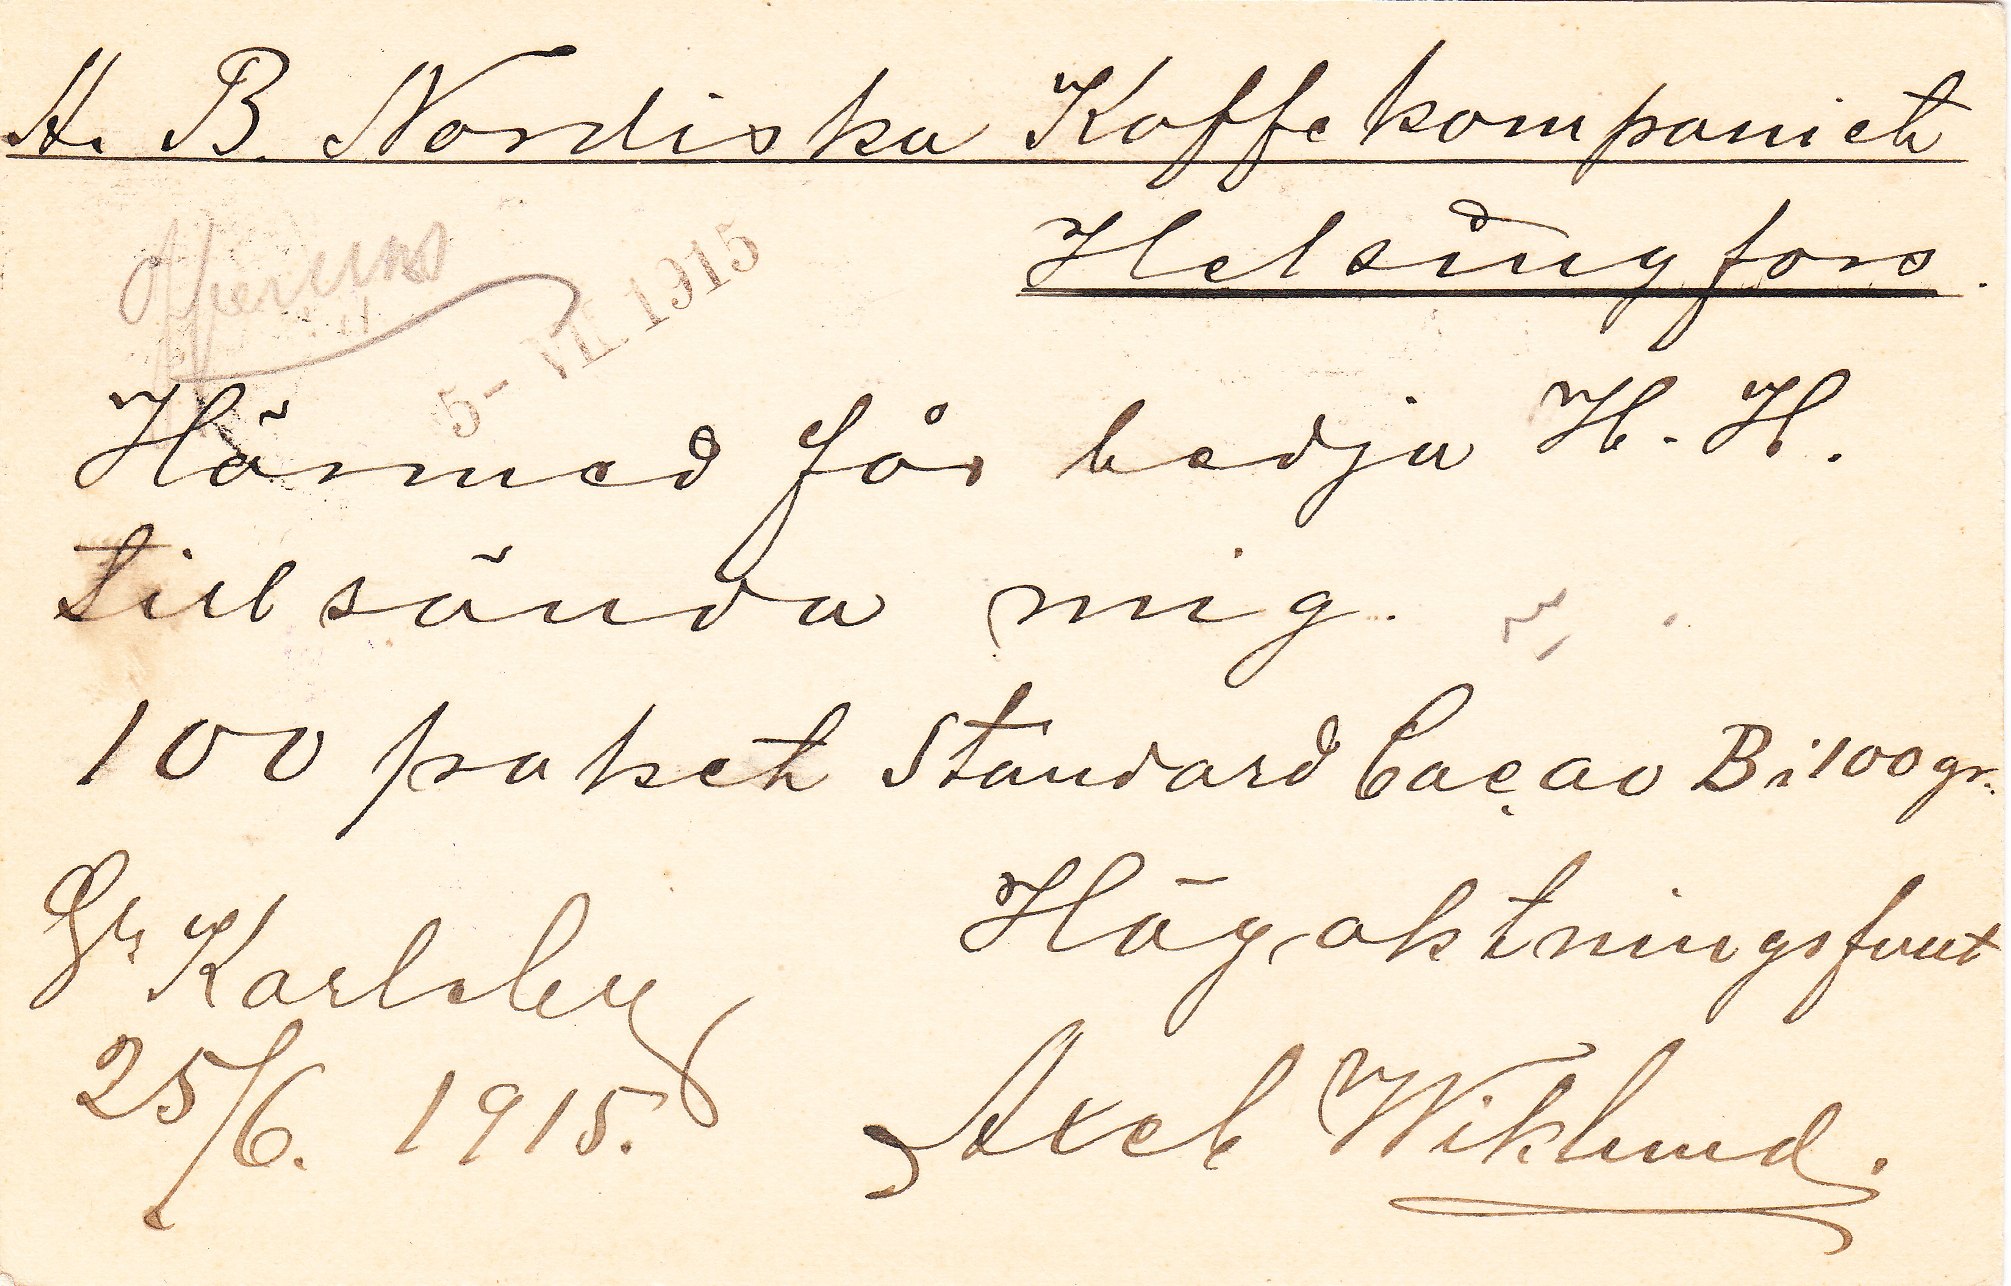 A. B. Nordiska Kaffekompaniet
Helsingfors.
5 - VII. 1915
Härmed får bedja H. H.
tillsända mig.
100 paket Standard Cacao B i 100 gr.
Gr Karleby
25/6. 1915.
Högaktningsfullt
Axel Wiklund.